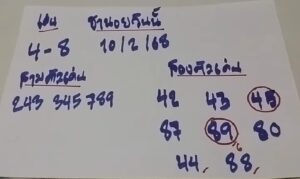 เด่น ฮานอยวันนี้
4-8 10/2/68
สามตัวเด่น สองตัวเด่น
243 345 789 42 43 45
87 89 80
44, 88,